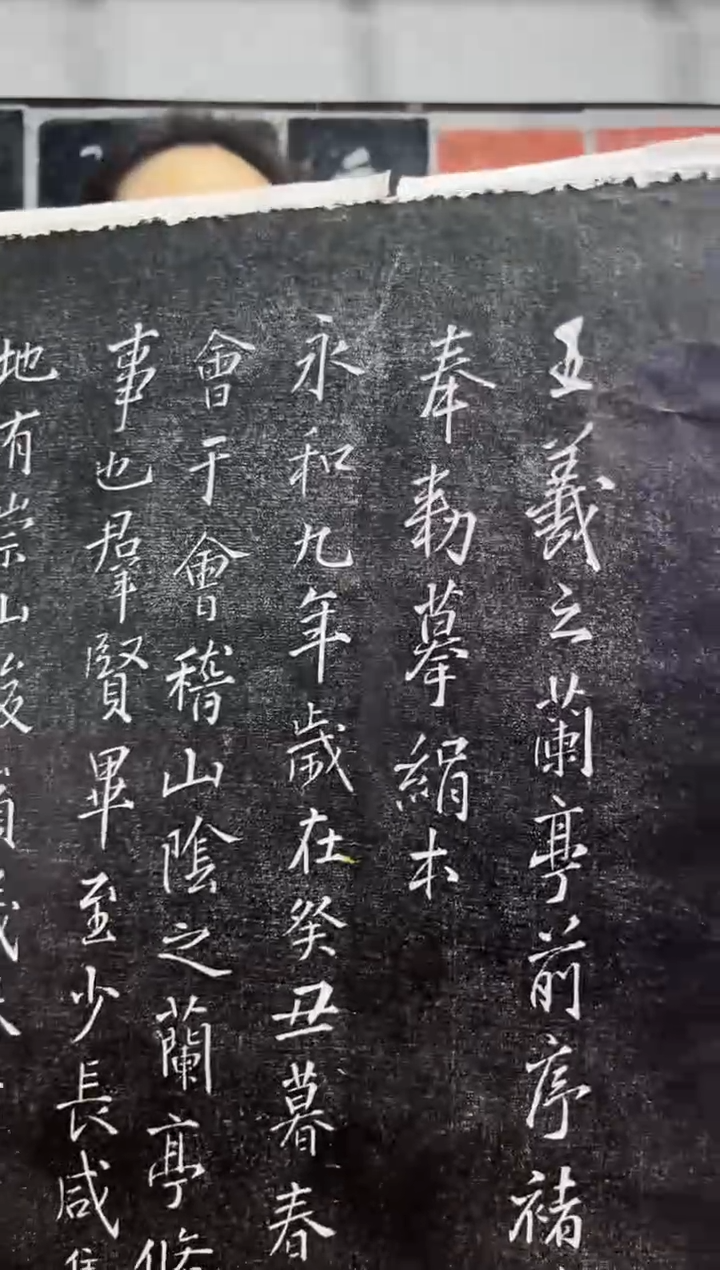 王羲之蘭亭前序褚
奉勑摹絹本
永和九年歲在癸丑暮春
會于會稽山陰之蘭亭脩
事也羣賢畢至少長咸集
地有崇山峻領茂林